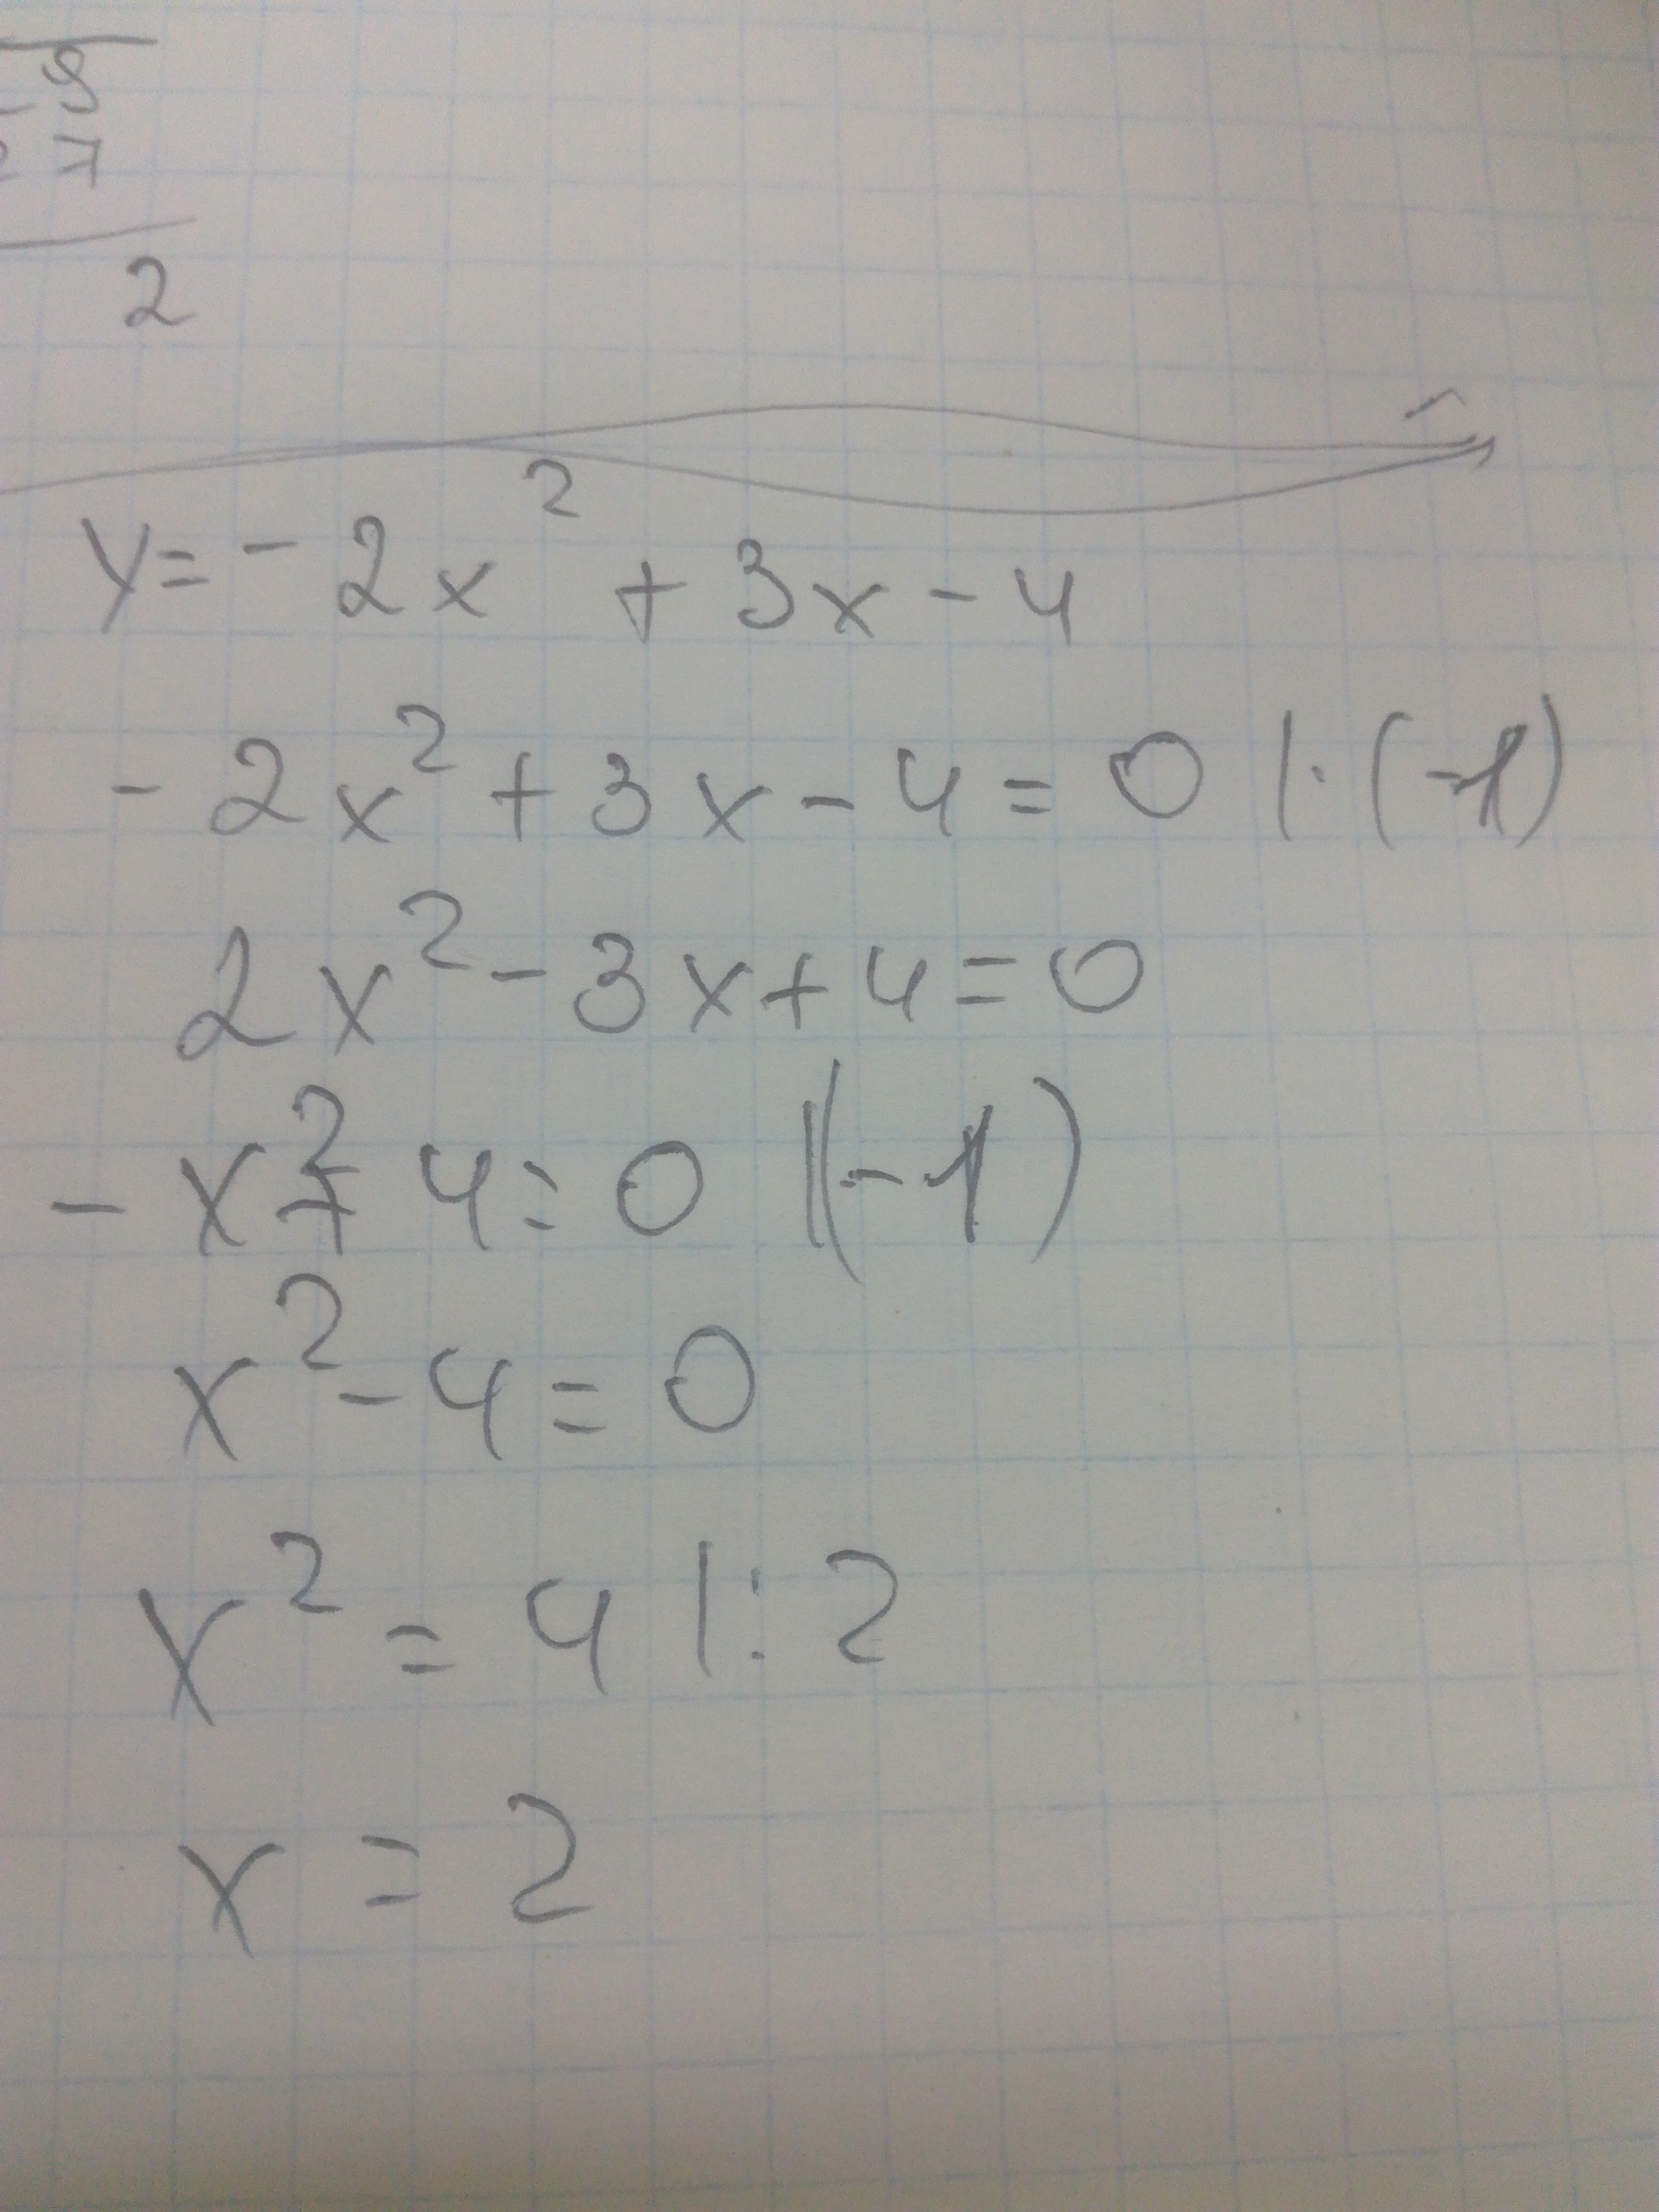 9
7
2
y = - 2x² + 3x - 4
- 2x² + 3x - 4 = 0 | · (-1)
2x² - 3x + 4 = 0
- x² + 4 = 0 |(-1)
x² - 4 = 0
x² = 4 | : 2
x = 2